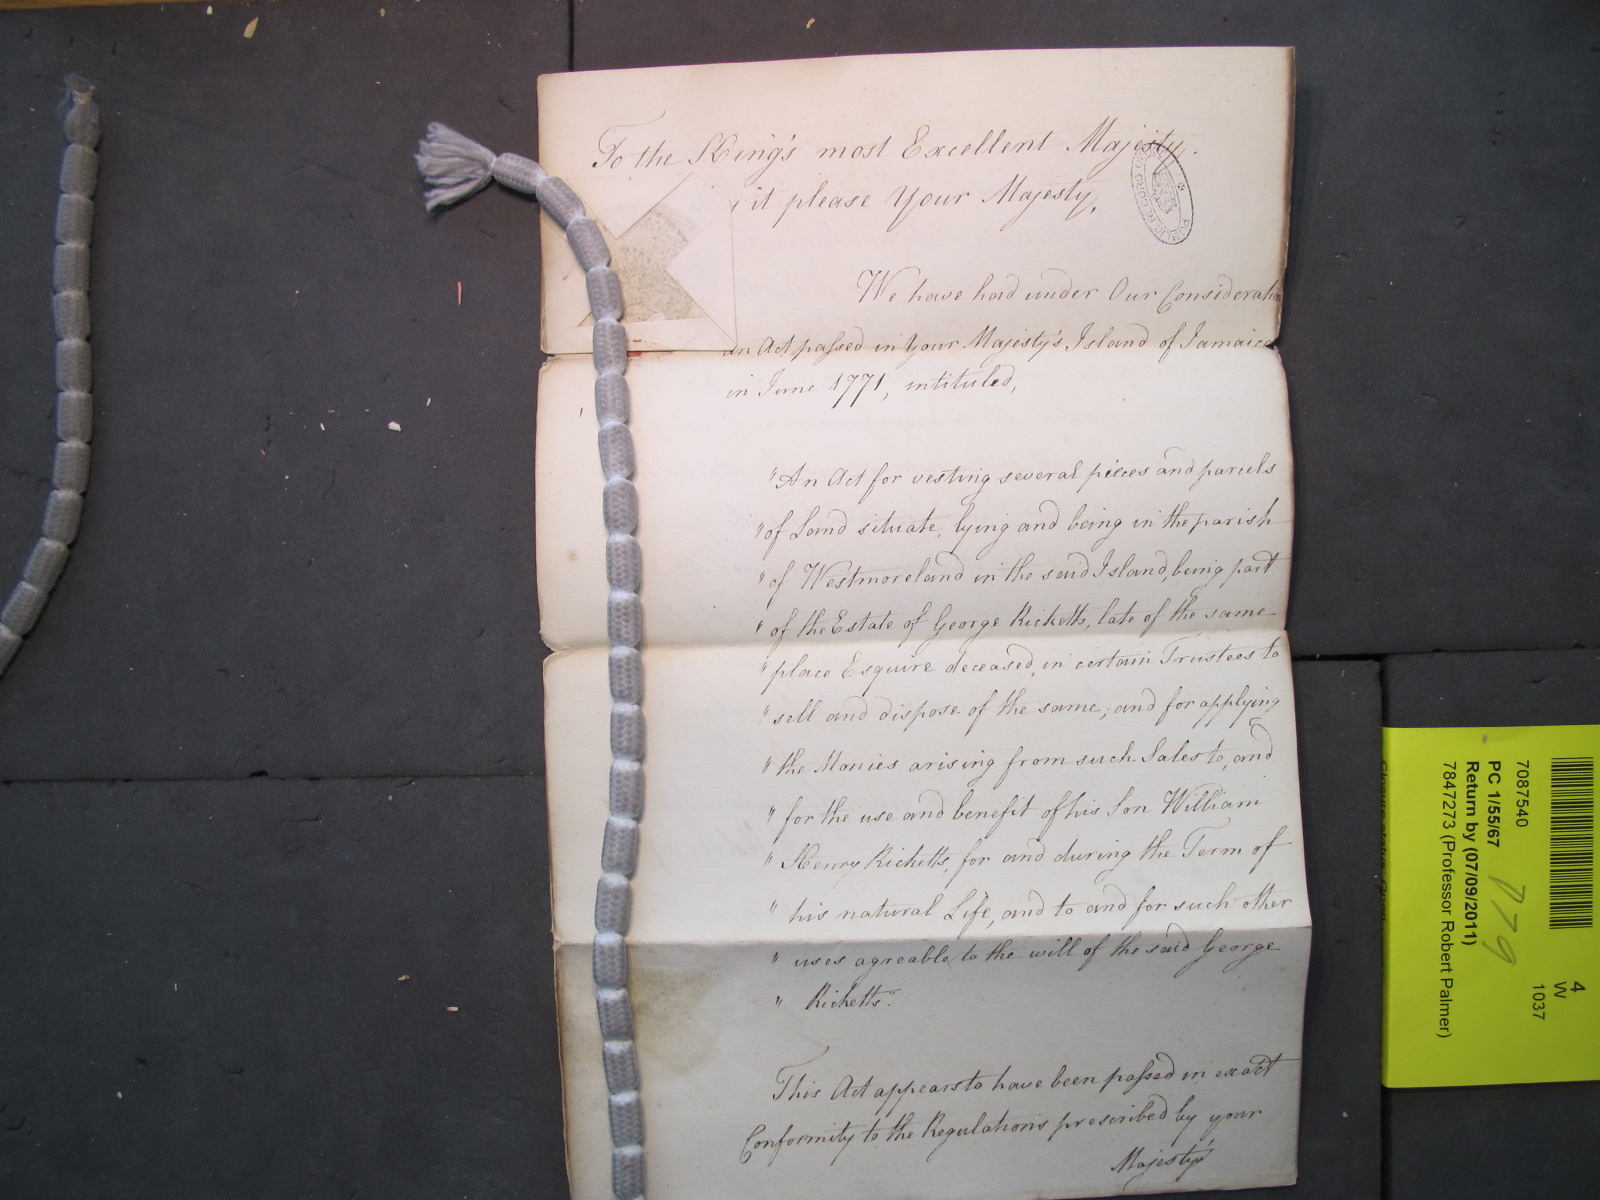 To the King's most Excellent Majesty.
it please Your Majesty,
We have had under Our Consideration
an Act passed in Your Majesty's Island of Jamaica
in June 1771, intituled,
"An Act for vesting several pieces and parcels
"of Land situate, lying and being in the parish
"of Westmoreland in the said Island, being part
"of the Estate of George Ricketts, late of the same
"place Esquire deceased, in certain Trustees to
"sell and dispose of the same; and for applying
"the Monies arising from such Sales to, and
"for the use and benefit of his Son William
"Henry Ricketts, for and during the Term of
"his natural Life, and to and for such other
"uses agreable to the will of the said George
"Ricketts."
This Act appears to have been passed in exact
Conformity to the Regulations prescribed by your
Majesty's
PUBLIC RECORD OFFICE
7087540
PC 1/55/67
Return by (07/09/2011)
7847273 (Professor Robert Palmer)
D79
4
W
1037